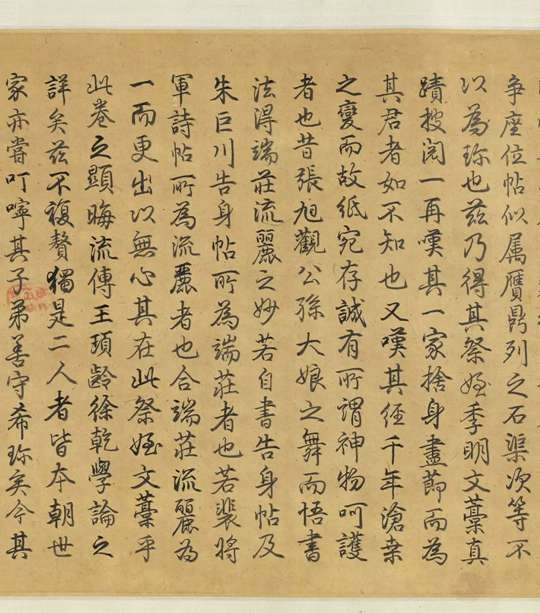 争座位帖似属贗鼎列之石渠次等不
以為珎也兹乃得其祭姪季明文藁真
蹟披閲一再嘆其一家捨身盡節而為
其君者如不知也又嘆其經千年滄桒
之變而故紙宛存誠有所謂神物呵護
者也昔張旭觀公孫大娘之舞而悟書
法得端莊流麗之妙若自書告身帖及
朱巨川告身帖所為端莊者也若裴將
軍詩帖所為流麗者也合端莊流麗為
一而更出以無心其在此祭姪文藁乎
此卷之顯晦流傳王頊齡徐乾學論之
詳矣兹不複贅獨是二人者皆本朝世
家亦嘗叮嚀其子弟善守希珎矣今其